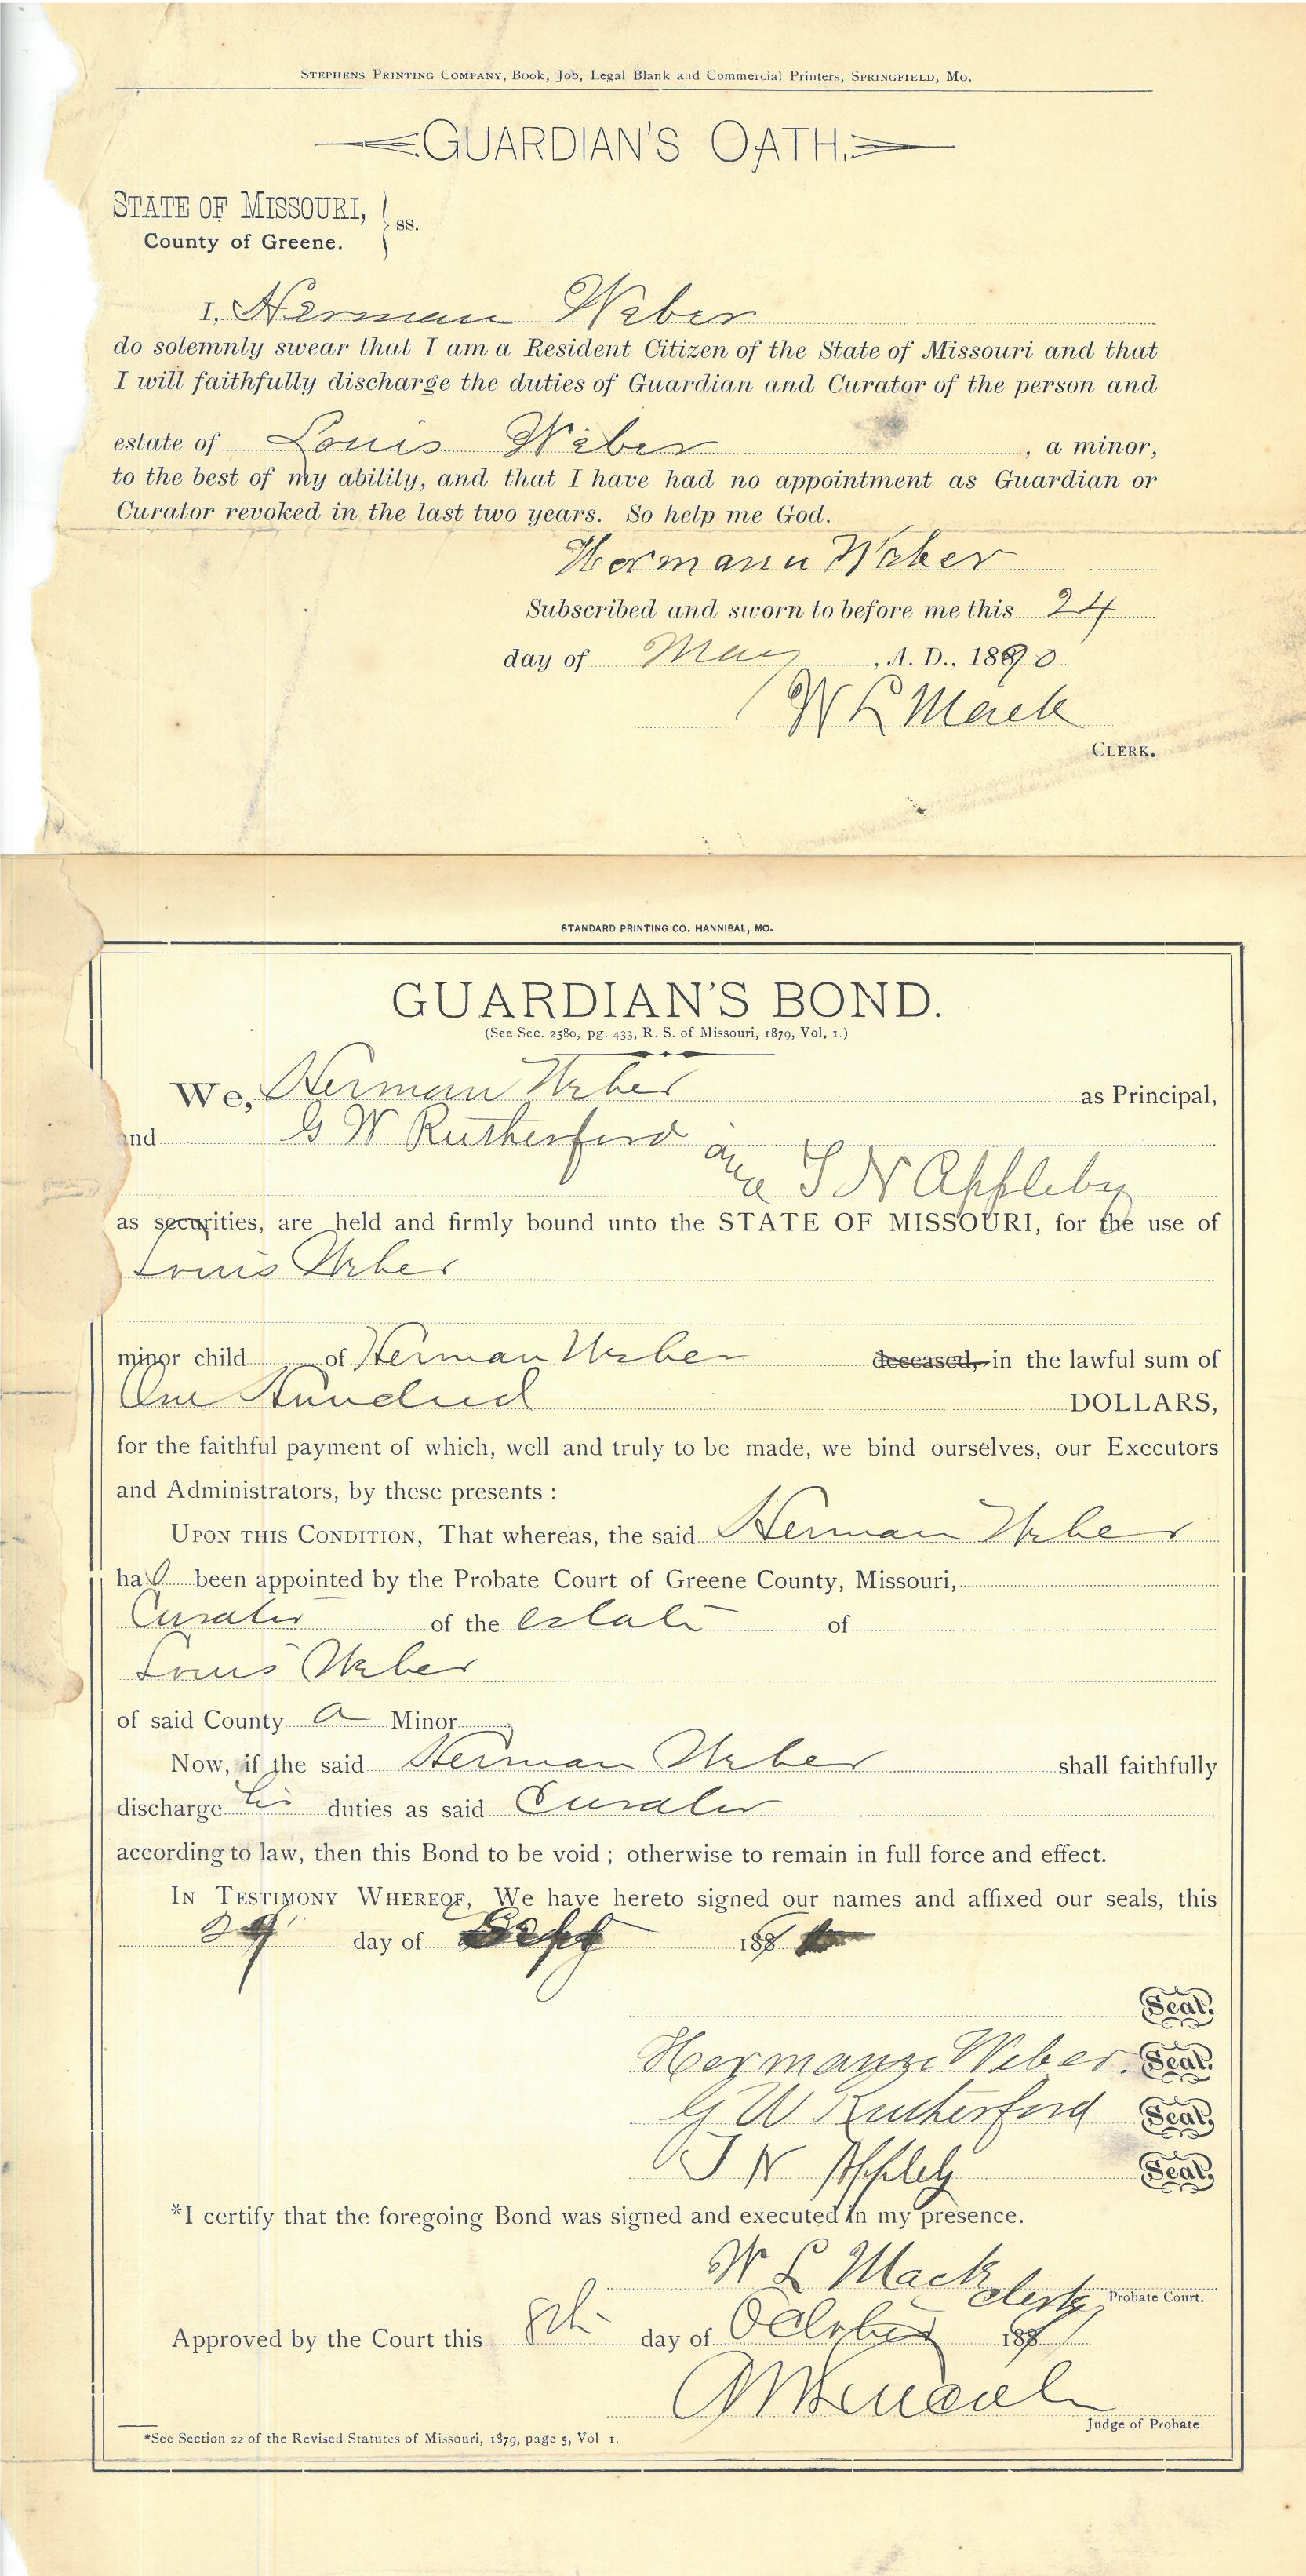 STEPHENS PRINTING COMPANY, Book, Job, Legal Blank and Commercial Printers, SPRINGFIELD, MO.
GUARDIAN'S OATH.
STATE OF MISSOURI, } ss.
County of Greene.
I, Herman Weber
do solemnly swear that I am a Resident Citizen of the State of Missouri and that
I will faithfully discharge the duties of Guardian and Curator of the person and
estate of Louis Weber, a minor,
to the best of my ability, and that I have had no appointment as Guardian or
Curator revoked in the last two years. So help me God.
Hermann Weber
Subscribed and sworn to before me this 24
day of May, A. D., 1890
W L Mack
CLERK.
STANDARD PRINTING CO. HANNIBAL, MO.
GUARDIAN'S BOND.
(See Sec. 2580, pg. 433, R. S. of Missouri, 1879, Vol, 1.)
We, Herman Weber as Principal,
and G W Rutherford
and T N Appleby
as securities, are held and firmly bound unto the STATE OF MISSOURI, for the use of
Louis Weber
minor child of Herman Weber deceased, in the lawful sum of
One Hundred DOLLARS,
for the faithful payment of which, well and truly to be made, we bind ourselves, our Executors
and Administrators, by these presents :
UPON THIS CONDITION, That whereas, the said Herman Weber
has been appointed by the Probate Court of Greene County, Missouri,
Curator of the estate of
Louis Weber
of said County a Minor
Now, if the said Herman Weber shall faithfully
discharge his duties as said Curator
according to law, then this Bond to be void ; otherwise to remain in full force and effect.
IN TESTIMONY WHEREOF, We have hereto signed our names and affixed our seals, this
29 day of Sept 189
Seal.
Hermann Weber. Seal.
G W Rutherford Seal.
T N Appleby Seal.
*I certify that the foregoing Bond was signed and executed in my presence.
W L Mack clerk Probate Court.
Approved by the Court this 8th day of October 189
Judge of Probate.
*See Section 22 of the Revised Statutes of Missouri, 1879, page 5, Vol 1.